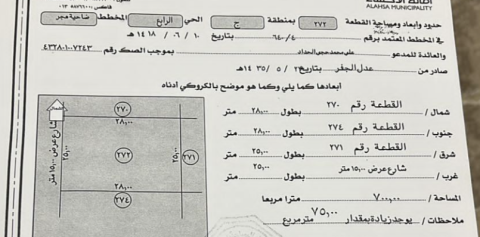 ALAHSA MUNICIPALITY
حدود وأبعاد ومساحة القطعة ٢٧٢ بمنطقة ج الحي الرابع المخطط ضاحية هجر
في المخطط المعتمد برقم ٦٤٠/٤ بتاريخ ١٠ / ٠٦ / ١٤١٨ هـ
والعائدة للمدعو علي محمد حجي الحداد بموجب الصك رقم
صادر من عدل الجفر بتاريخ ٢ / ٥ / ١٤٣٥ هـ
أبعادها كما يلي وكما هو موضح بالكروكي أدناه
شمال / القطعة رقم ٢٧٠ بطول ٢٨,٠٠ متر
جنوب / القطعة رقم ٢٧٤ بطول ٢٨,٠٠ متر
شرق / القطعة رقم ٢٧١ بطول ٢٥,٠٠ متر
غرب / شارع عرض ١٥,٠٠ متر بطول ٢٥,٠٠ متر
المساحة / ٧٠٠,٠٠ مترا مربعا
ملاحظات / يوجد زيادة بمقدار ٧٥,٠٠ متر مربع
٢٧٠
٢٨,٠٠
شارع عرض ١٥,٠٠ متر
٢٥,٠٠
٢٧٢
٢٥,٠٠
٢٧١
٢٨,٠٠
٢٧٤